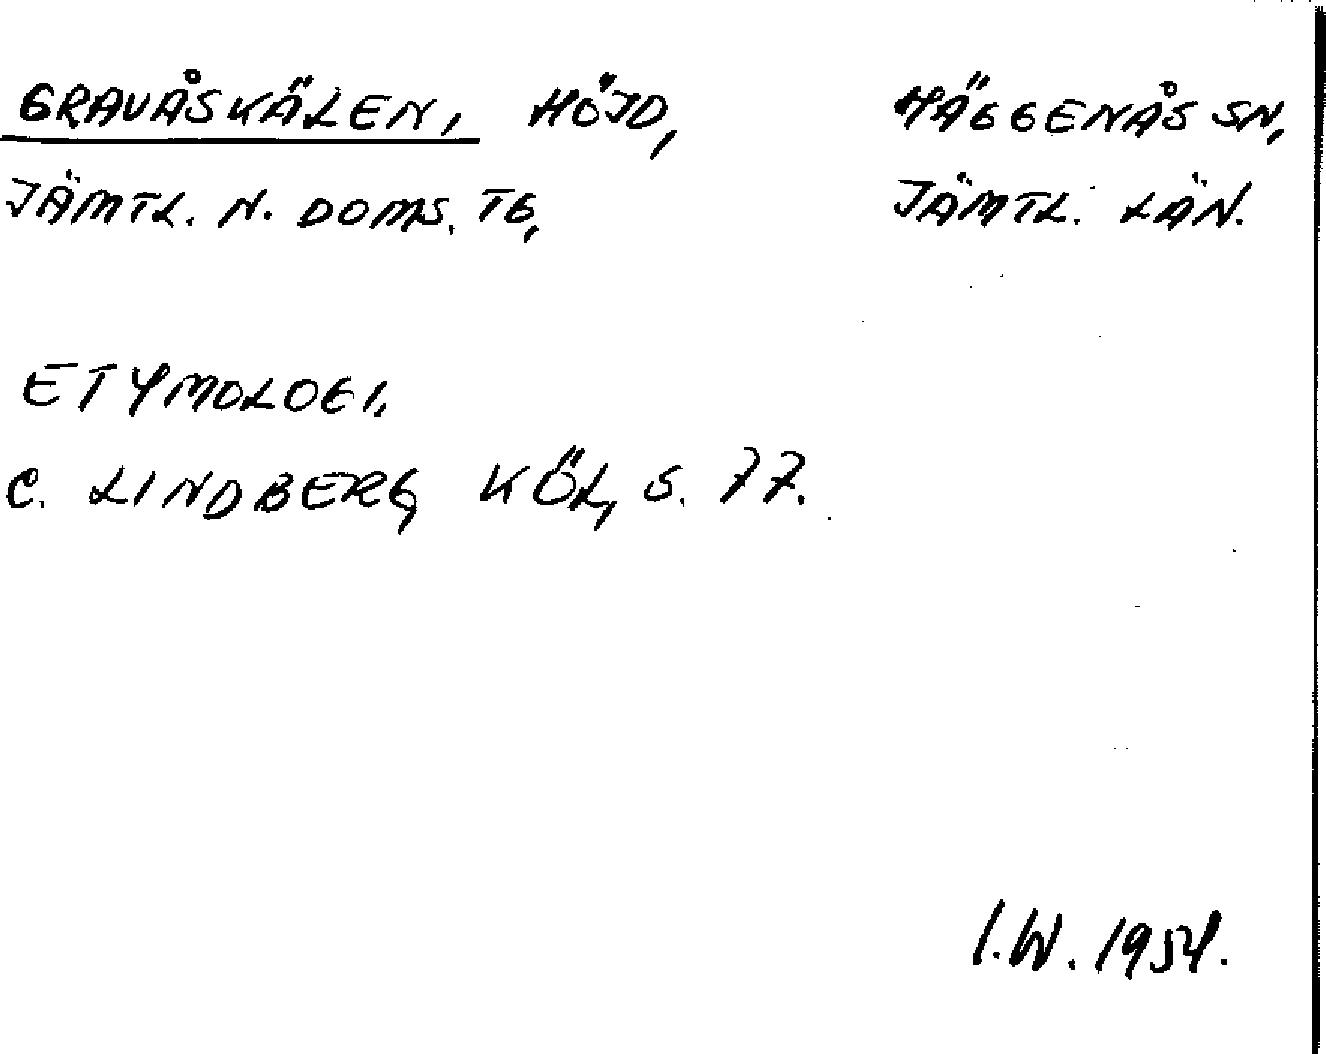 GRAVÅSKÄLEN, HÖJD, HÄGGENÅS SN,
JÄMTL. N. DOMS. TG, JÄMTL. LÄN.
ETYMOLOGI,
C. LINDBERG, KÖL, S. 77.
I.W. 1954.